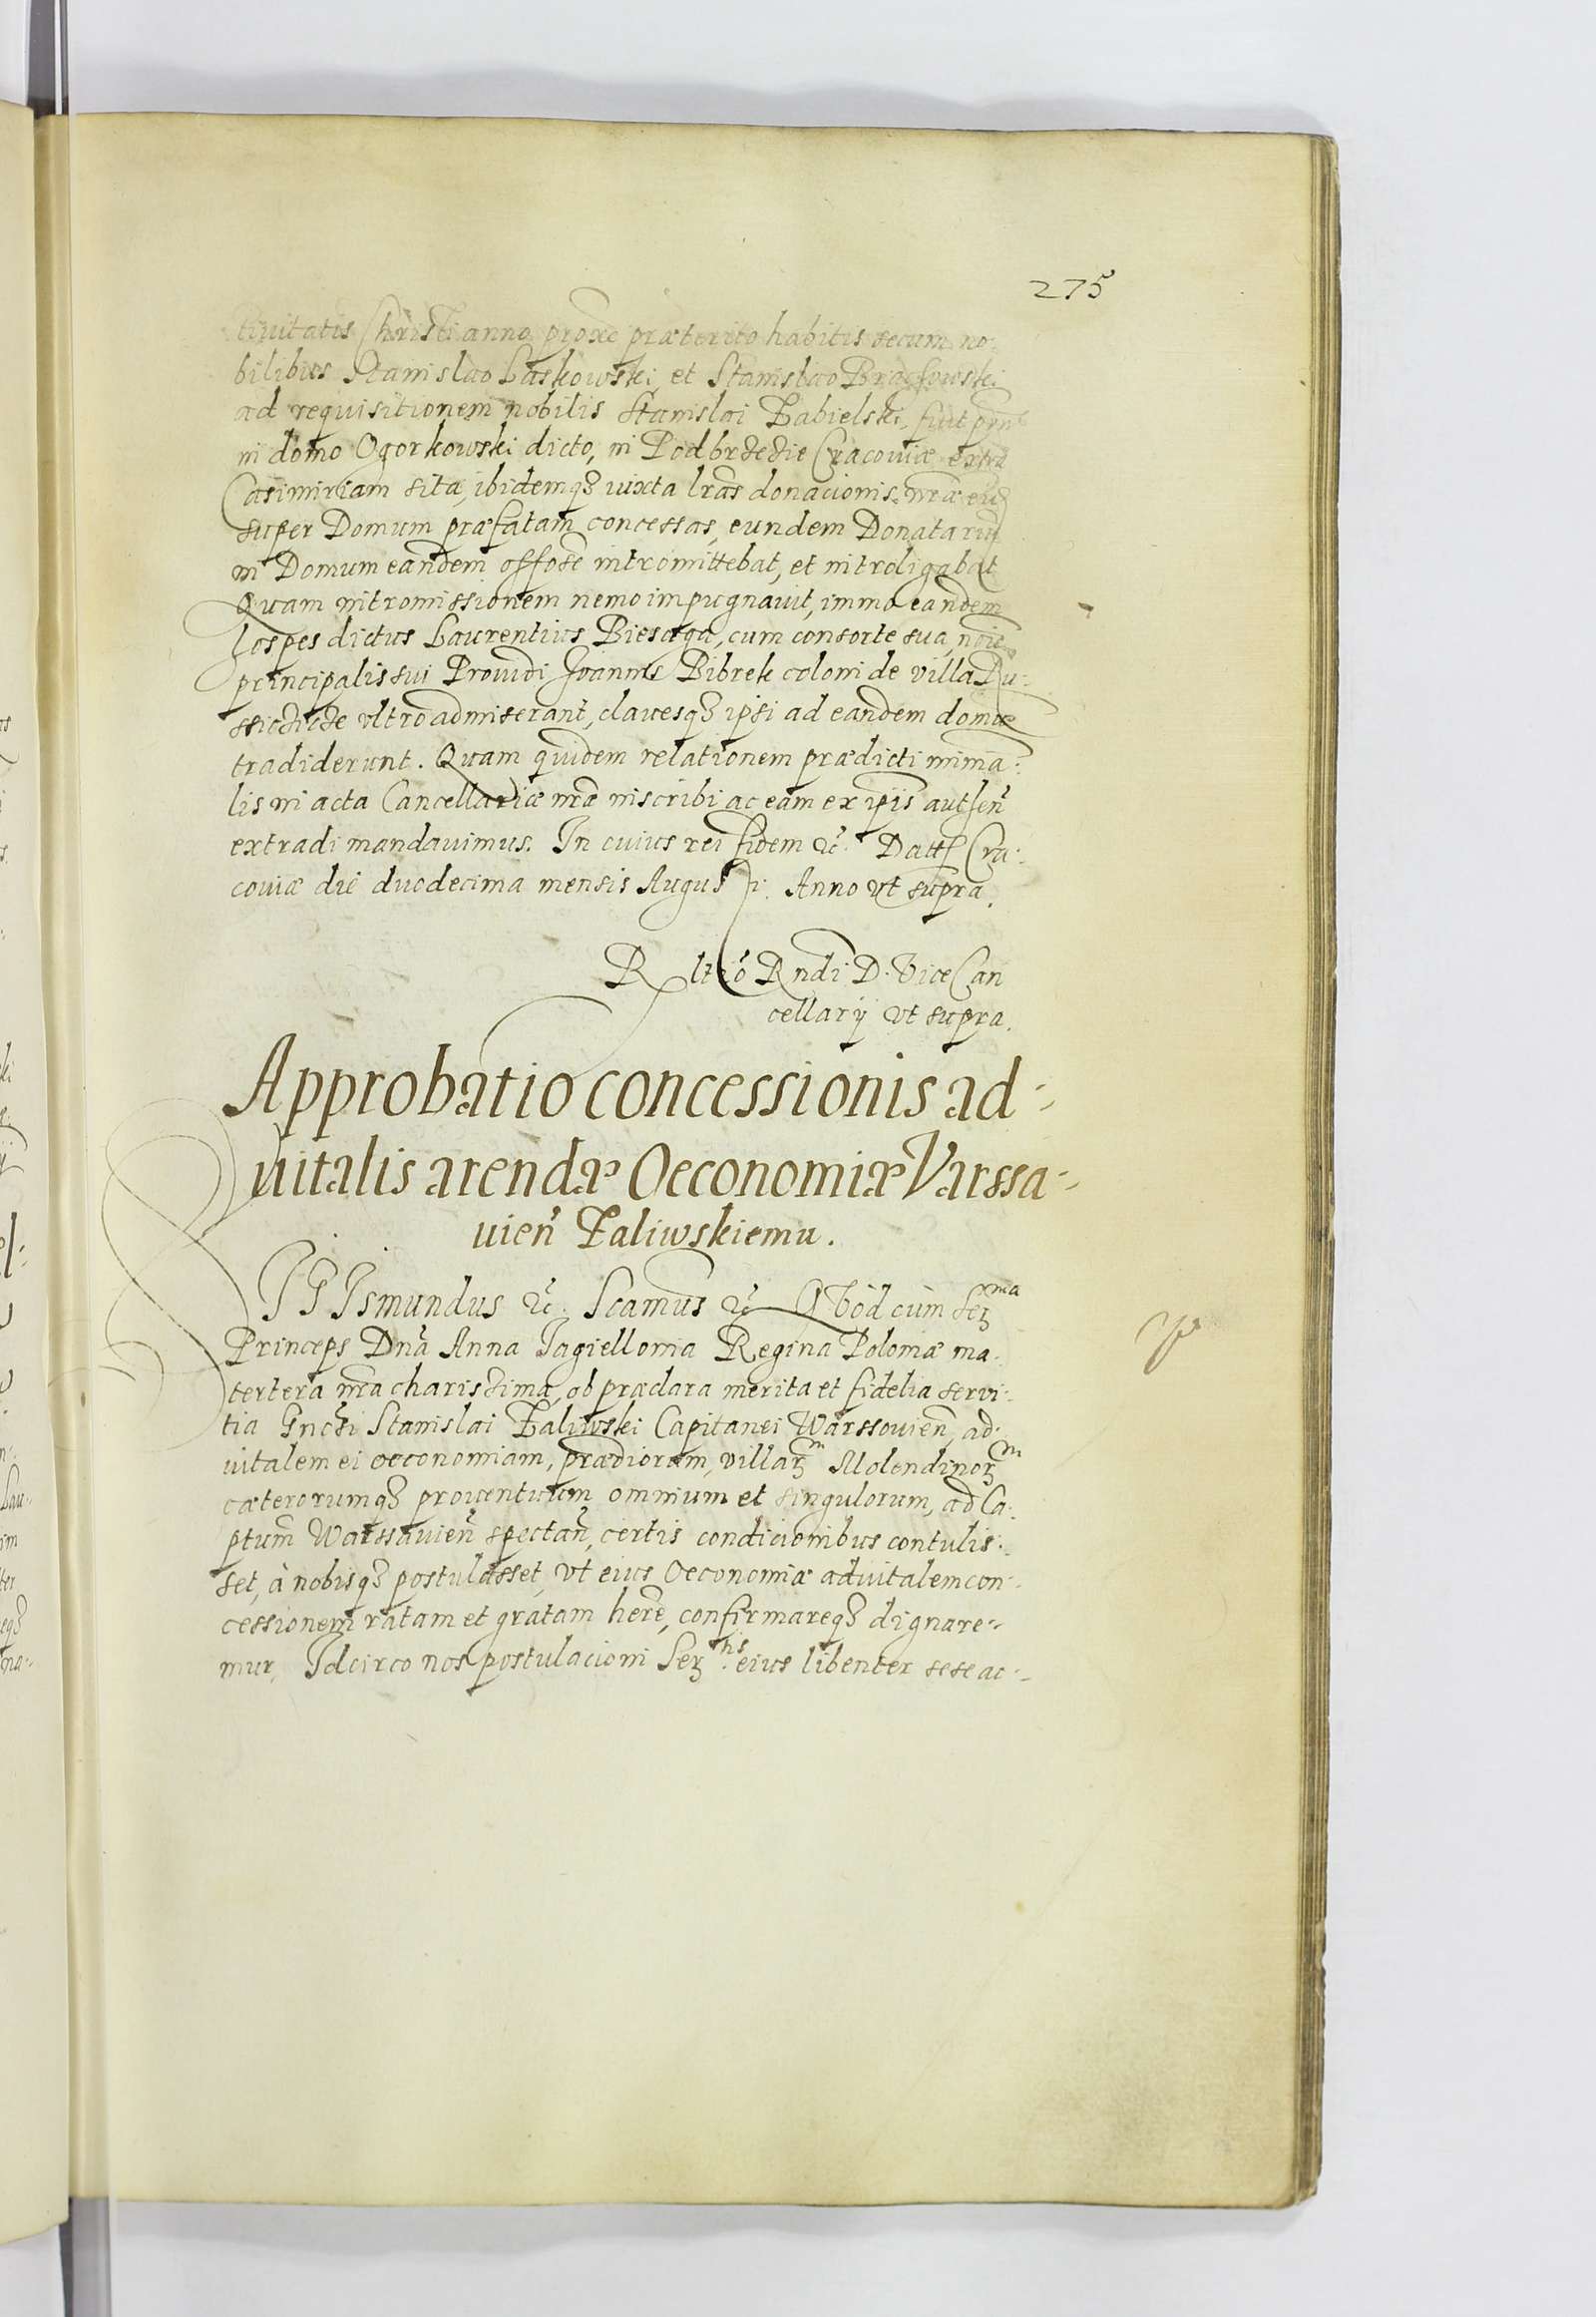 275
tiuitatis Christi anno proxe præterito habitis secum no:
bilibus Stanislao Laskowski, et Stanislao Brackowski
ad requisitionem nobilis Stanislai Zabielski, fuit
in domo Ogorkowski dicto, in Podbrzezie Cracouiæ extra
Casimiriam sita, ibidemqȝ iuxta lr̃as donacionis nr̃æ
super Domum præfatam concessas, eundem Donatariũ
in Domum eandem offose intromittebat, et introligabat
Quam intromissionem nemo impugnauit, immo eandem
hospes dictus Laurentius Biesaga, cum consorte sua, noie
principalis sui Prouidi Joannis Bibrek coloni de villa Ru:
ssiczicze vltro admiserant, clauesqȝ ipsi ad eandem domũ
tradiderunt. Quam quidem relationem prædicti minia:
lis in acta Cancellariæ nr̃æ inscribi ac eam ex ip̃is authen̄
extradi mandauimus. In cuius rei fidem &c̃. Datt Cra:
couiæ die duodecima mensis Augusti. Anno vt supra.
Rltio Rndi D. Vice Can
cellarij vt supra.
Approbatio concessionis ad-
uitalis arendæ Oeconomiæ Varssa-
uien̄ Zaliwskiemu.
SIGIsmundus &c̃. Scamus &c̃ QVod cum Serma
Princeps Dna Anna Jagiellonia Regina Poloniæ ma.
tertera nr̃a charissima, ob præclara merita et fidelia serui:
tia Gnosi Stanislai Zaliwski Capitanei Warssouien̄, ad:
uitalem ei oeconomiam, prædiorum, villarm Molendinorm
cæterorumqȝ prouentuum omnium et singulorum, ad Ca:
ptum̄ Warssauien̄ spectan̄, certis condicionibus contulis:
set, à nobisqȝ postulasset, vt eius Oeconomiæ aduitalem con-
cessionem ratam et gratam her̃e, confirmareqȝ dignare-
mur, Idcirco nos postulacioni Sertis. eius libenter sese ac-